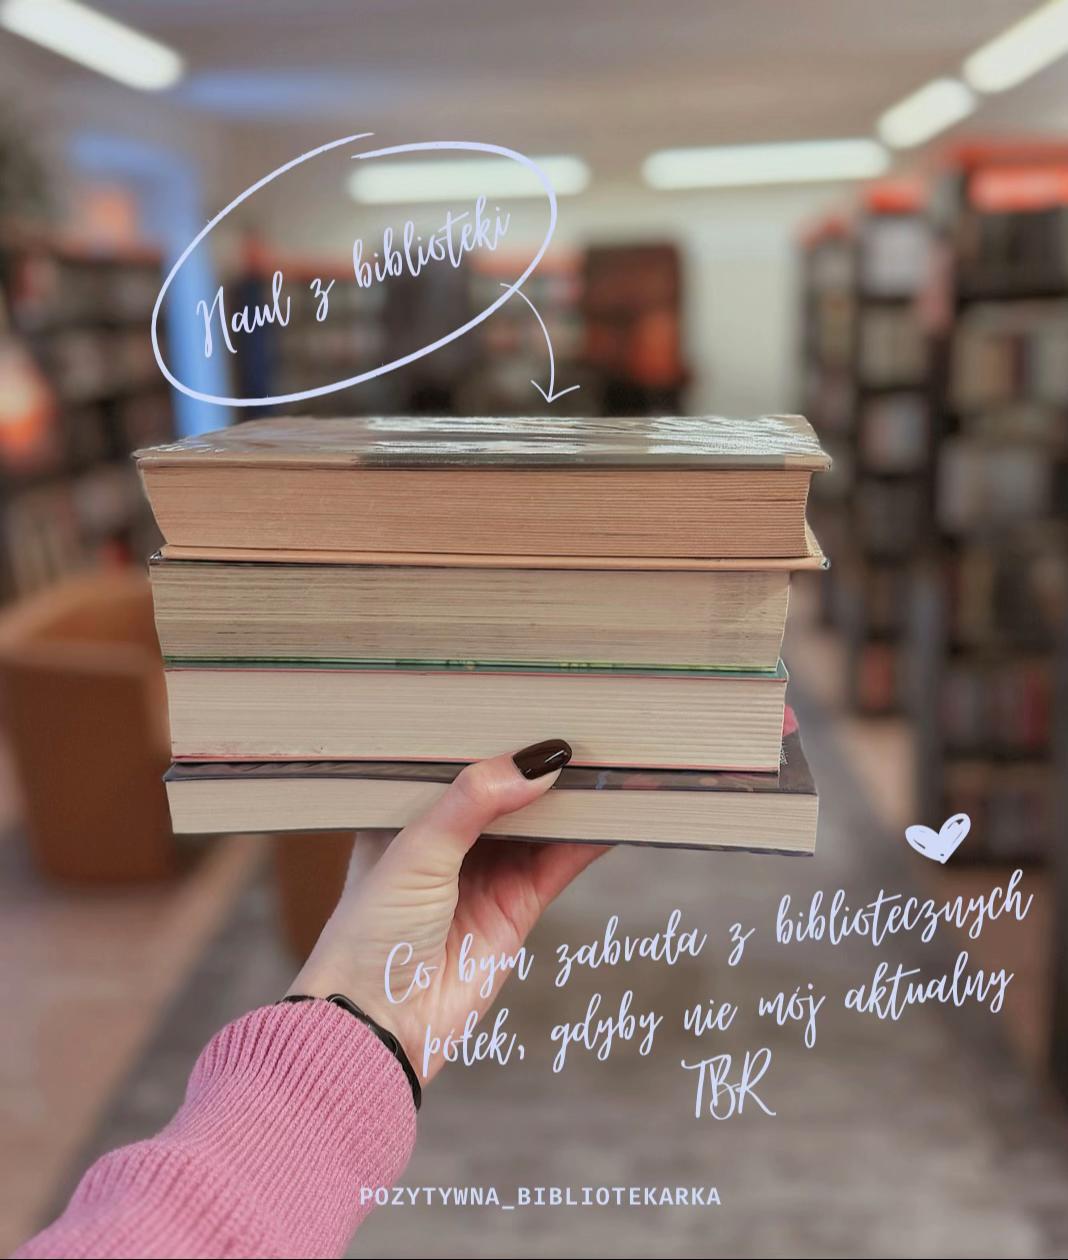 Haul z biblioteki
Co bym zabrała z bibliotecznych
półek, gdyby nie mój aktualny
TBR
POZYTYWNA_BIBLIOTEKARKA